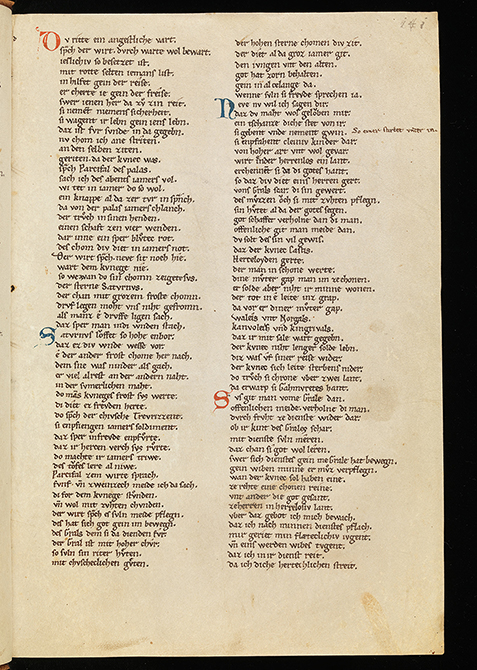 141
Dv ritte ein angestliche vart.
sp̄ch der wirt. dvrch warte wol bewart.
ieslichiv so besetzet ist.
mit rotte selten iemans list.
in hilfet gein der reise.
er cherte ie gein der freise.
swer ienen her da zv zin reit.
si nement niemens sicherheit.
si wagent ir lebn gein iens lebn.
daz ist fvr svnde in da gegebn.
nv chom ich ane striten.
an den selben ziten.
geriten. da der kvnec was.
sp̄ch Parcifal des palas.
sach ich des abents iamers vol.
wi tet in iamer do so wol.
ein knappe al da zer tvr in sp̄ch.
da von der palas iamers chlanch.
der trvch in sinen henden.
einen schaft zen vier wenden.
dar inne ein sper blvtec rot.
des chom div diet in iamers not.
Der wirt sp̄ch. neve sit noch hie.
wart dem kvnege nie.
so we. wan do sin chomn zeigete svs.
der sterne Satvrnvs.
der chan mit grozem froste chomn.
drvf legen moht vns niht gefromn.
als manz ê drvffe ligen sach.
daz sper man indi wnden stach.
Satvrnvs lovffet so hohe enbor.
daz ez div wnde wesse vor.
ê der ander frost chome her nach.
dem sne was ninder als gach.
er viel alrest an der andern naht.
in der svmerlichen maht.
do mans kvnegef frost svs werte.
di diet ez frevden herte.
do sp̄ch der chevsche Trevrizzent.
si enpfiengen iamers soldiment.
daz sper infrevde enpfvrte.
daz ir herzen verch svs rvrte.
do machte ir iamers triwe.
des tovfes lere al niwe.
Parcifal zem wirte sprach.
fvnf vn̄ zweinzech meide ich da sach.
di for dem kvnege stvnden.
vn̄ wol mit zvhten chvnden.
der wirt sp̄ch es svln meide pflegn.
des hat sich got gein im bewegn.
des grals dem si da dienden fvr.
der gral ist mit hoher chvr.
so svln sin riter hvten.
mit chevschechlichen gvten.
der hohen sterne chomen div zit.
der diet al da groz iamer git.
den ivngen vnt den alten.
got hat zorn behalten.
gein in al ze lange da.
wenne svln si frevde sprechen ia.
Neve nv wil ich sagen dir.
daz dv maht wol gelovben mir.
ein schanze dicke stet vor ir.
si gebent vnde nement gwin.
si enpfahent cleiniv kinder dar
von hoher art vnt wol gevar.
wirt inder herrenlos ein lant.
erchennent si da di gotes hant.
so daz div diet eins herren gert.
vons grals scar. di sin gewert.
des mvzzen ovch si mit zvhten pflegn.
sin hvtet al da der gotes segen.
got schaffet verholne dan di man.
offenliche git man meide dan.
dv solt des sin vil gewis.
daz der kvnec Castis.
Herzeloyden gerte.
der man in schone werte.
dine mvter gap man im ze chonen.
er solde aber niht ir minne wonen.
der tot in ê leite inz grap.
da vor er diner mvter gap.
waleis vnt Norgals.
kanvoleis vnd kingrivals.
daz ir mit sale wart gegebn.
der kvnec niht lenger solde lebn.
diz was vf siner reise wider.
der kvnec sich leite sterbens nider.
do trvch si chrone vber zwei lant.
da erwarp si Gahmvretes hant.
Svs git man vome grale dan.
offenlichen meide. verholne di man.
dvrch frvht ze dienste wider dar.
ob ir kint des grales schar.
mit dienste svln meren.
daz chan si got wol leren.
swer sich dienstes gein me grale hat bewegn.
gein wiben minne er mvz verpflegn.
wan der kvnec sol haben eine.
ze rehte eine chonen reine.
vnt ander die got gesant.
ze herren in herrelosiv lant.
vber daz gebot ich mich bewach.
daz ich nach minnen dienstes pflach.
mir geriet min flætechlichiv ivgent.
vn̄ eins werden wibes tvgent.
daz ich in ir dienst reit.
da ich dicke hertechlichen streit.